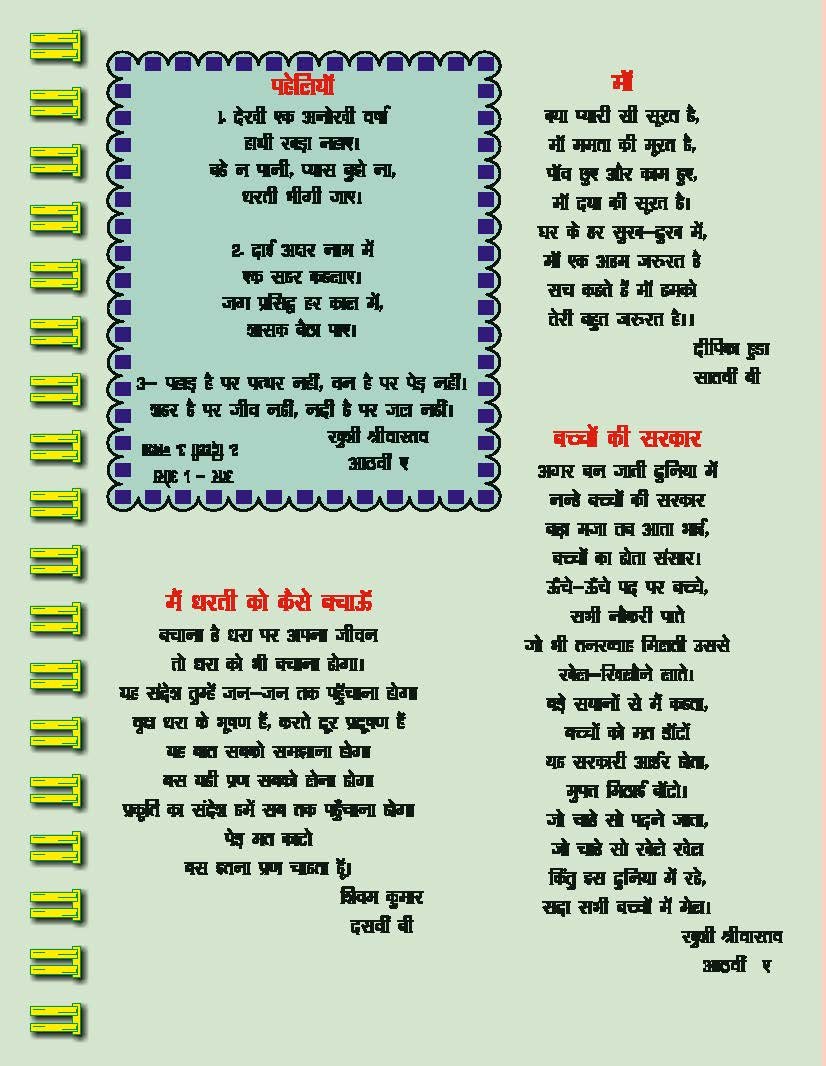 पहेलियाँ
1. देखी एक अनोखी वर्षा
हाथी खड़ा नहाए।
बढे न पानी, प्यास बुझे ना,
धरती भीगी जाए।
2. ढाई अक्षर नाम में
एक सहर कहलाए।
जग प्रसिद्ध हर काल में,
शासक बैठा पाए।
3– पहाड़ है पर पत्थर नहीं, वन है पर पेड़ नहीं।
शहर है पर जीव नहीं, नदी है पर जल नहीं।
खुशी श्रीवास्तव
आठवीं ए
उत्तर – 1. ओस
2. दिल्ली 3. नक्शा
मैं धरती को कैसे बचाऊँ
बचाना है धरा पर अपना जीवन
तो धरा को भी बचाना होगा।
यह संदेश तुम्हें जन–जन तक पहुँचाना होगा
वृक्ष धरा के भूषण हैं, करते दूर प्रदूषण हैं
यह बात सबको समझाना होगा
बस यही प्रण सबको लेना होगा
प्रकृति का संदेश हमें सब तक पहुँचाना होगा
पेड़ मत काटो
बस इतना प्रण चाहता हूँ।
शिवम कुमार
दसवीं बी
माँ
क्या प्यारी सी सूरत है,
माँ ममता की मूरत है,
पाँव छुए और काम हुए,
माँ दया की सूरत है।
घर के हर सुख–दुख में,
माँ एक अहम जरुरत है
सच कहते हैं माँ हमको
तेरी बहुत जरुरत है।।
दीपिका हुडा
सातवीं बी
बच्चों की सरकार
अगर बन जाती दुनिया में
नन्हे बच्चों की सरकार
बड़ा मजा तब आता भाई,
बच्चों का होता संसार।
ऊँचे–ऊँचे पद पर बच्चे,
सभी नौकरी पाते
जो भी तनख्वाह मिलती उससे
खेल–खिलौने लाते।
बड़े सयानों से मैं कहता,
बच्चों को मत डाँटों
यह सरकारी आर्डर होता,
मुफ्त मिठाई बाँटो।
जो चाहे सो पढ़ने जाता,
जो चाहे सो खेले खेल
किंतु इस दुनिया में रहे,
सदा सभी बच्चों में मेल।
खुशी श्रीवास्तव
आठवीं ए